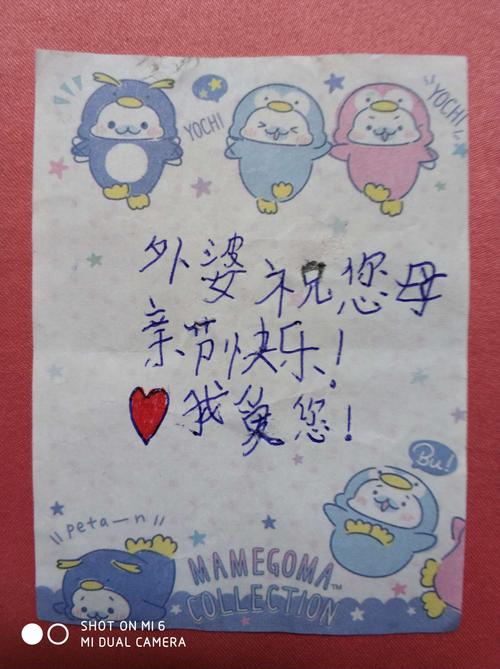 YOCHI
YOCHI
外婆祝您母
亲节快乐！
我爱您！
Bu!
peta—n
MAMEGOMA™
COLLECTION
SHOT ON MI 6
MI DUAL CAMERA